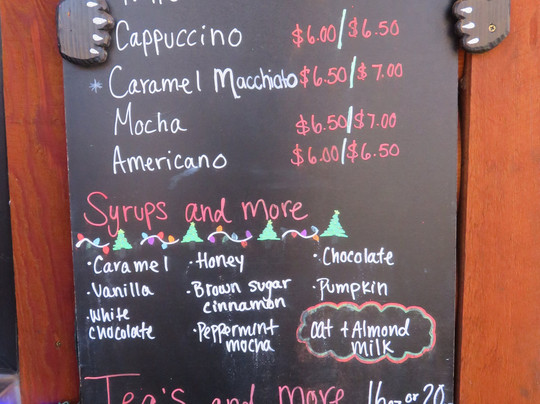 Cappuccino $6.00/$6.50
* Caramel Macchiato $6.50/$7.00
Mocha $6.50/$7.00
Americano $6.00/$6.50
Syrups and more
·Caramel ·Honey ·Chocolate
·Vanilla ·Brown sugar cinnamon ·Pumpkin
·White chocolate ·Peppermint mocha Oat + Almond Milk
Tea's and more 16oz or 20